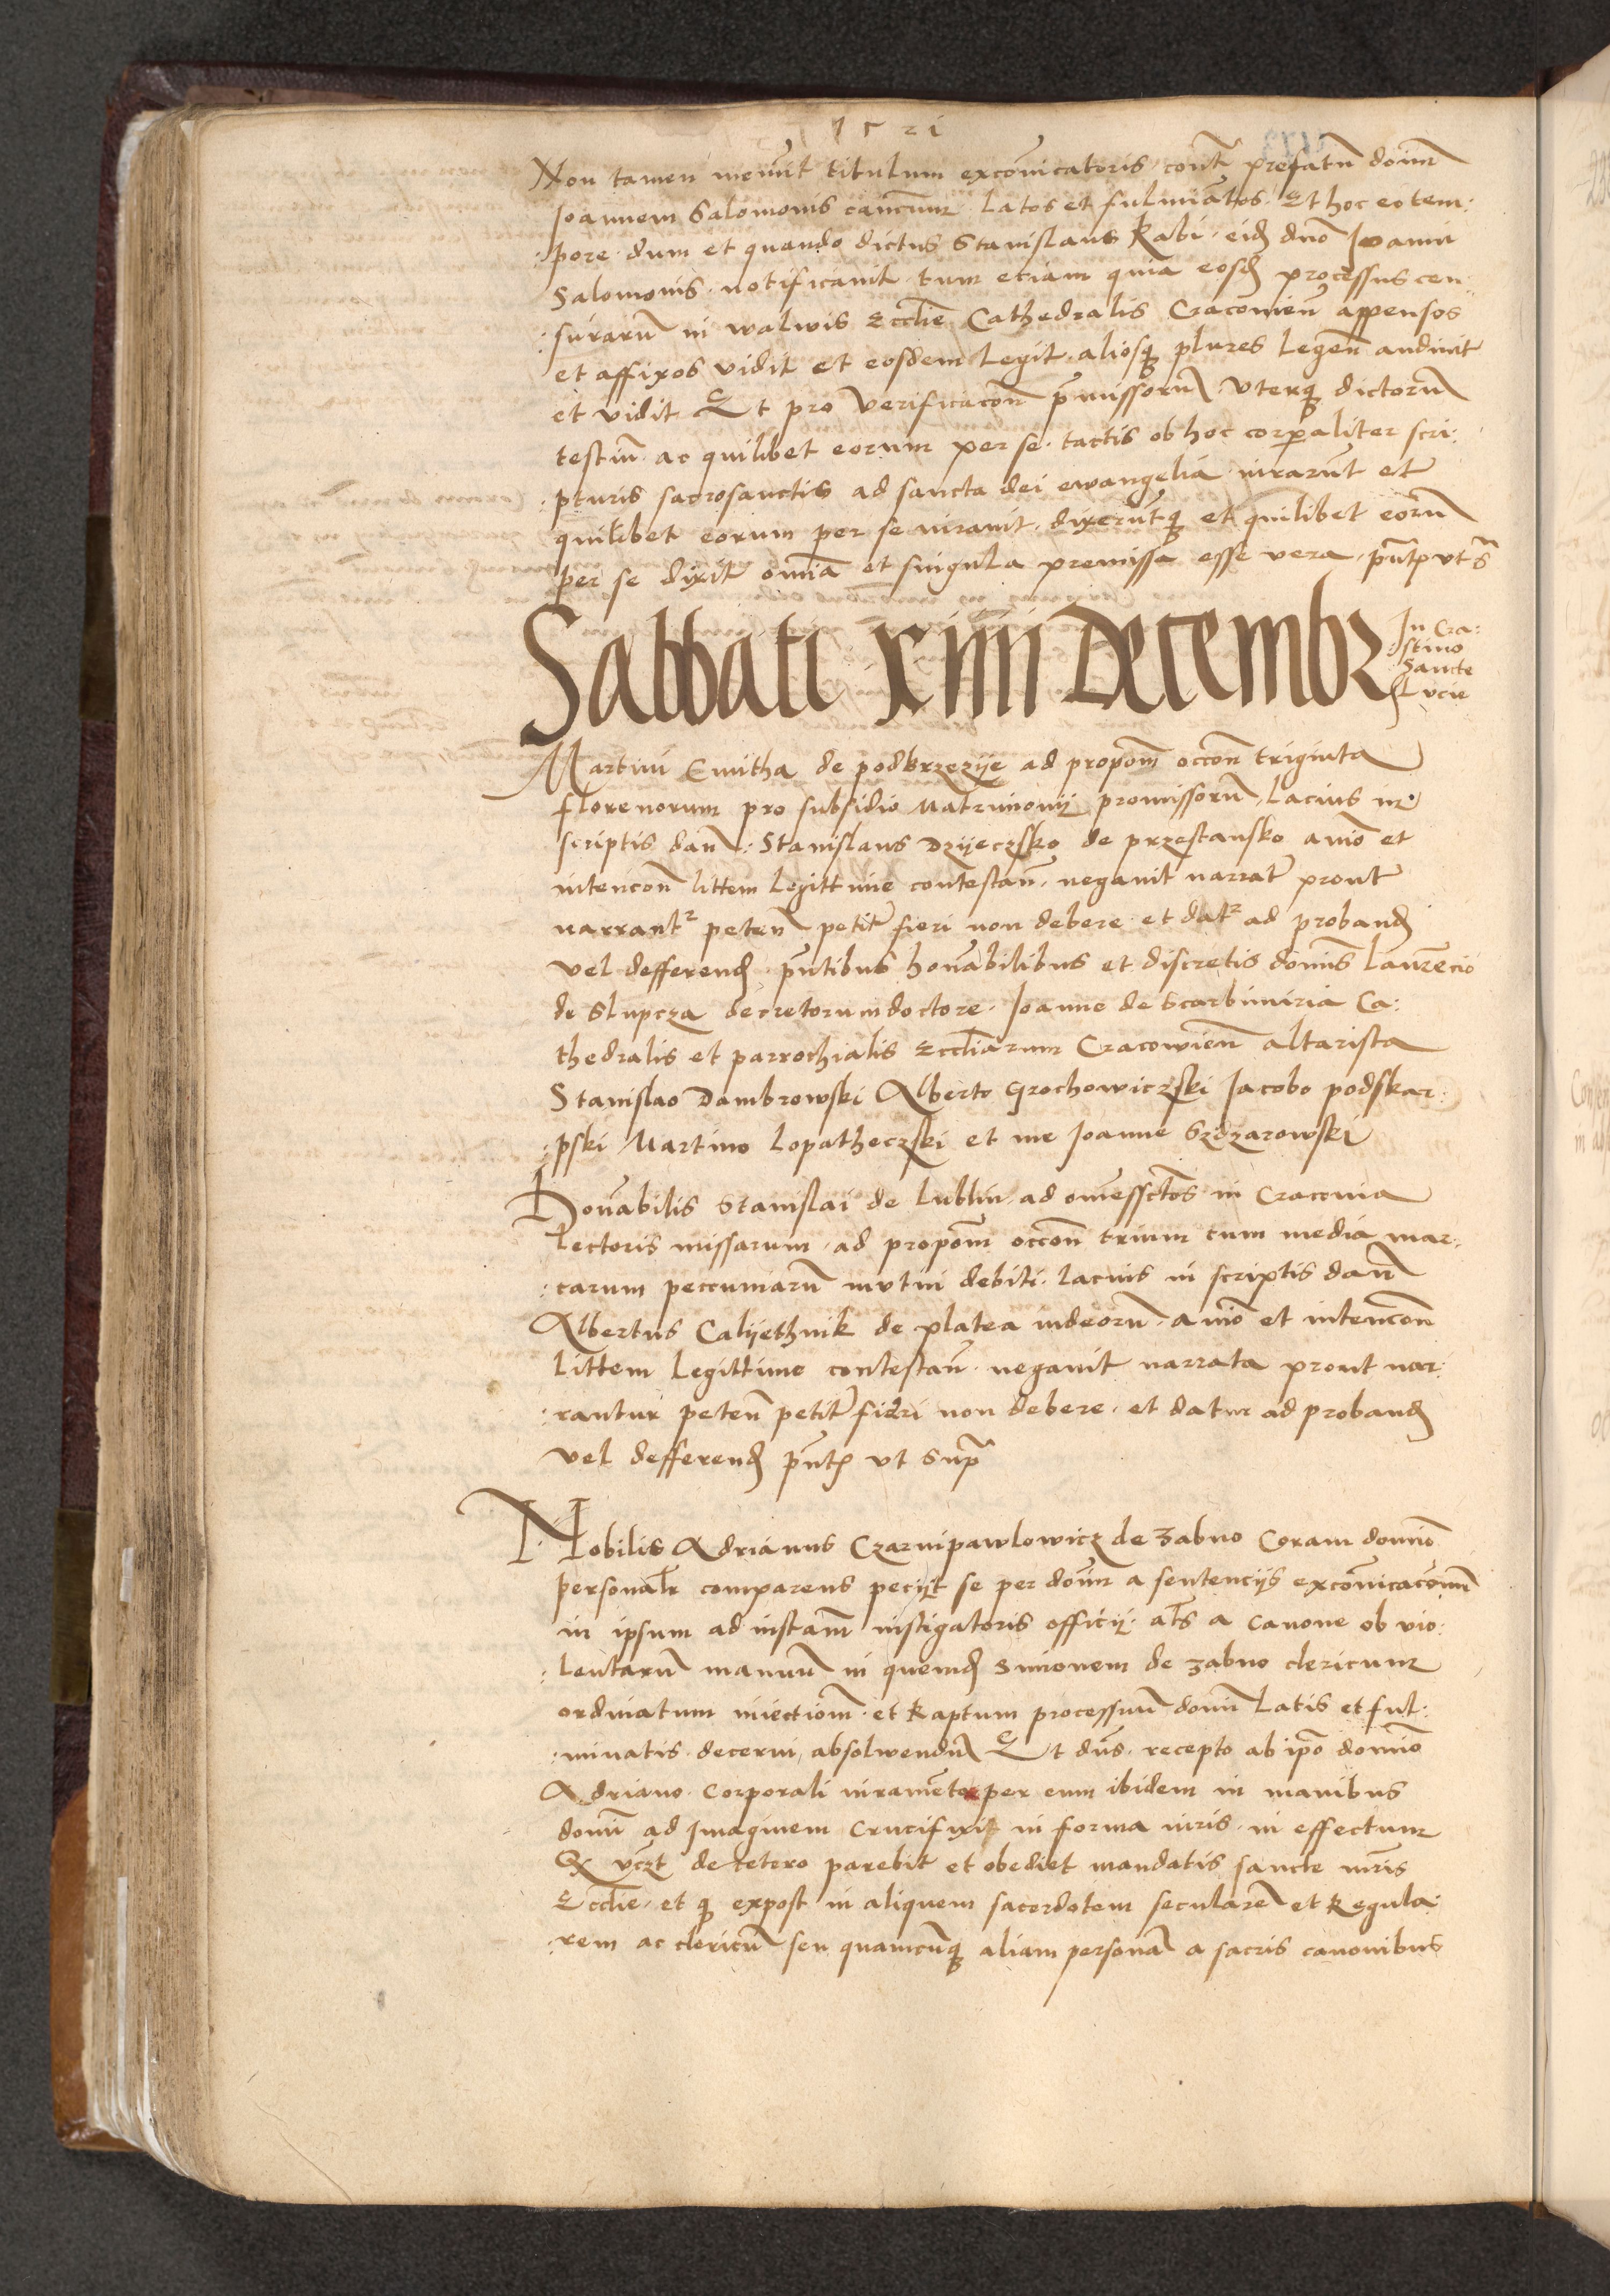 1521
Non tamen meminit titulum excōnicatoris contra prefatū doīm
Joannem Salomonis canc̄um latos et fulmiatos Et hoc eo tem:
:pore dum et quando dictus Stanislaus Rabi eid dn̄o Joanni
Salomonis notificavit tum etiam quia eosd processus cen:
:surarū in walwis Ecclie Cathedralis Cracovien̄ appensos
et affixos vidit et eosdem legit aliosq̧ plures legen̄ audivit
et vidit Et pro verificacon̄ p̄missorū uterq̧ dictorū
testiū ac quilibet eorum per se tactis ob hoc corporaliter scri:
:pturis sacrosanctis ad sancta dei ewangelia iurarūt et
quilibet eorum per se iuravit dixerūtq̧ et quilibet eorū
per se dixit om̄ia et singula premissa esse vera p̄ntp ut s̄
Sabbati xiiii Decembr
In Cra:
:stino
Sancte
Lucie
Martini Cmitha de podbrzezije ad propom̄ occon̄ triginta
florenorum pro subsidio Matrimonij promissorū lacius in
scriptis dan̄ Stanislaus Dzijeczsko de przestansko animo et
intencon̄ littem legittime contestan̄ negavit narrat̄ prout
narrantr peten̄ petit̄ fieri non debere et datr ad proband
vel defferend p̄ntibus honorabilibus et discretis dominis Laurēcio
de Slupcza decretorum doctore Joanne de Scarbimiria Ca:
:thedralis et parrochialis Eccliarum Cracowien̄ altarista
Stanislao Dambrowski Alberto Grochowiczski Jacobo podskar:
:pski Martino Lopatheczski et me Joanne Szdzarowski
Honorabilis Stanislai de Lublin ad om̄essctos in Cracovia
lectoris missarum ad propom̄ occon̄ trium cum media mar:
:carum peccuniarū mutui debiti lacius in scriptis dan̄
Albertus Calijethnik de platea iudeorū animo et intencon̄
littem legittime contestan̄ negavit narrata prout nar:
:rantur peten̄ petit̄ fieri non debere et datur ad proband
vel defferend p̄ntp ut supra
Nobilis Adrianus Czarnipawlowicz de Zabno Coram domīo
personal̄r comparens peciit se per doīm a sentencijs excōnicacōnū
in ipsum ad instam̄ instigatoris officij al̄s a canone ob vio:
:lentarū manuū in quemd Simonem de Zabno clericum
ordinatum iniectiom̄ et Raptum processuū domini latis et ful:
:minatis decerni absolwendū Et dn̄s recepto ab ipo domīo
Adriano corporali iuramēto per eum ibidem in manibus
domini ad Imaginem Crucifixi in forma iuris in effectum
Q vcz̄t de cetero parebit et obediet mandatis sancte m̄ris
Ecclie et q̧ expost in aliquem sacerdotem secularē et Regula:
:rem ac clericū seu quamcūq̧ aliam personā a sacris canonibus